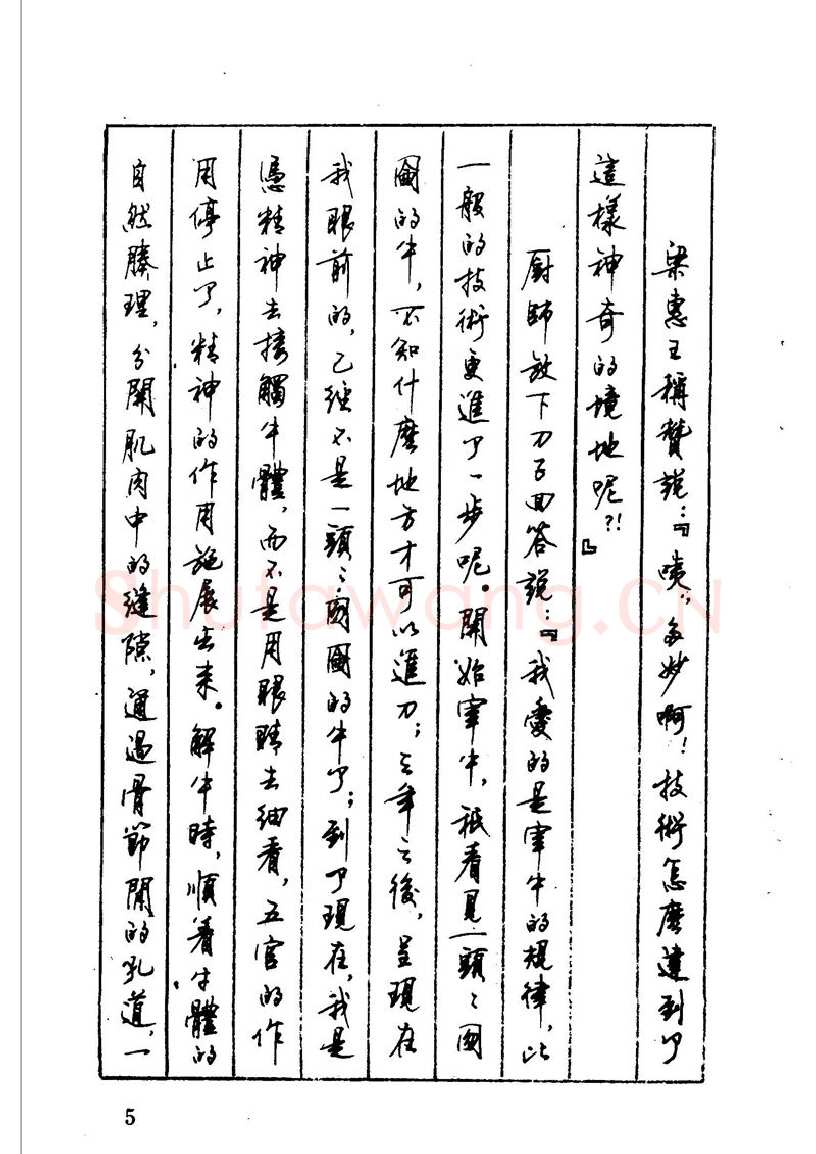 梁惠王稱贊說：『嘆，多妙啊！技術怎麽達到了
這樣神奇的境地呢？！』
厨師放下刀子回答說：『我愛的是宰牛的規律，比
一般的技術更進了一步呢。開始宰牛，祇看見一頭：囫
圇的牛，不知什麽地方才可以進刀；三年之後，呈現在
我眼前的，已經不是一頭：囫圇的牛了；到了現在，我是
憑精神去接觸牛體，而不是用眼睛去細看，五官的作
用停止了，精神的作用施展出来。解牛時，順着牛體的
自然腠理，分開肌肉中的縫隙，通過骨節間的孔道，一
Shufawang.CN
5